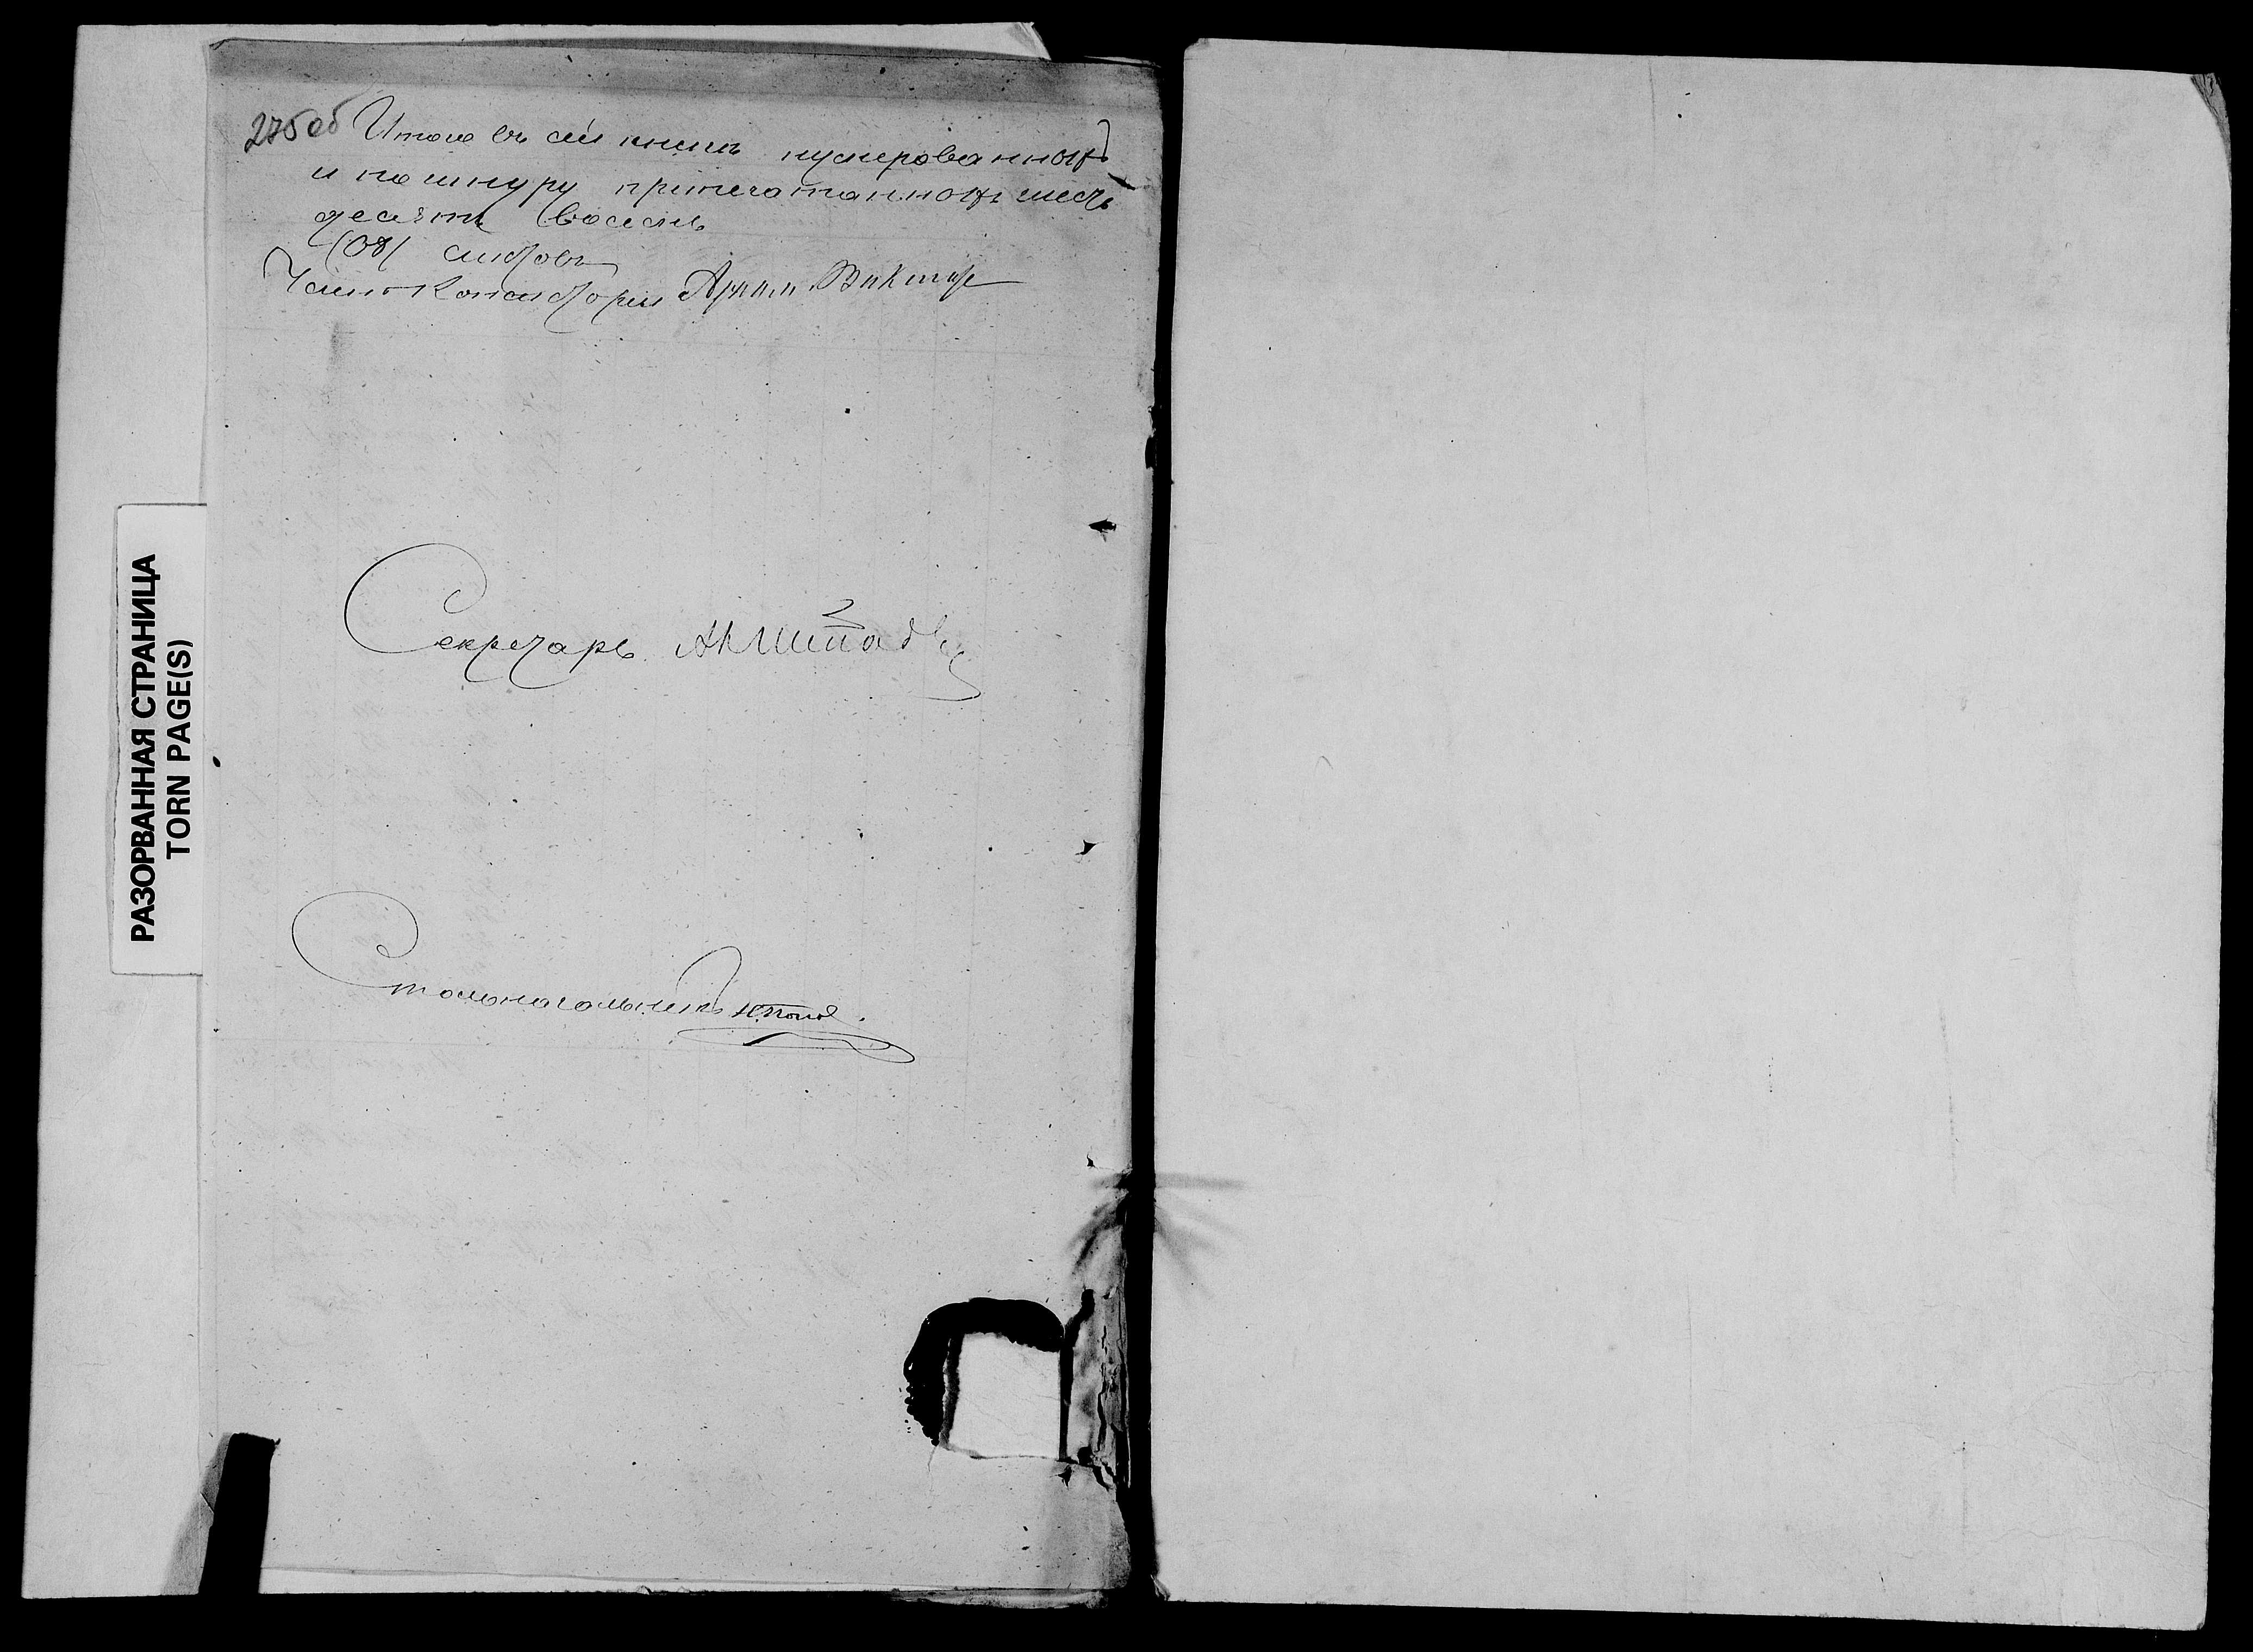 275 об
Итого въ сей книгѣ нумерованныхъ
и по шнуру припечатанныхъ шесть
десятъ восемь
(68) листовъ
Членъ Консисторіи
Секретарь
Столоначальникъ Н. Попов
РАЗОРВАННАЯ СТРАНИЦА
TORN PAGE(S)